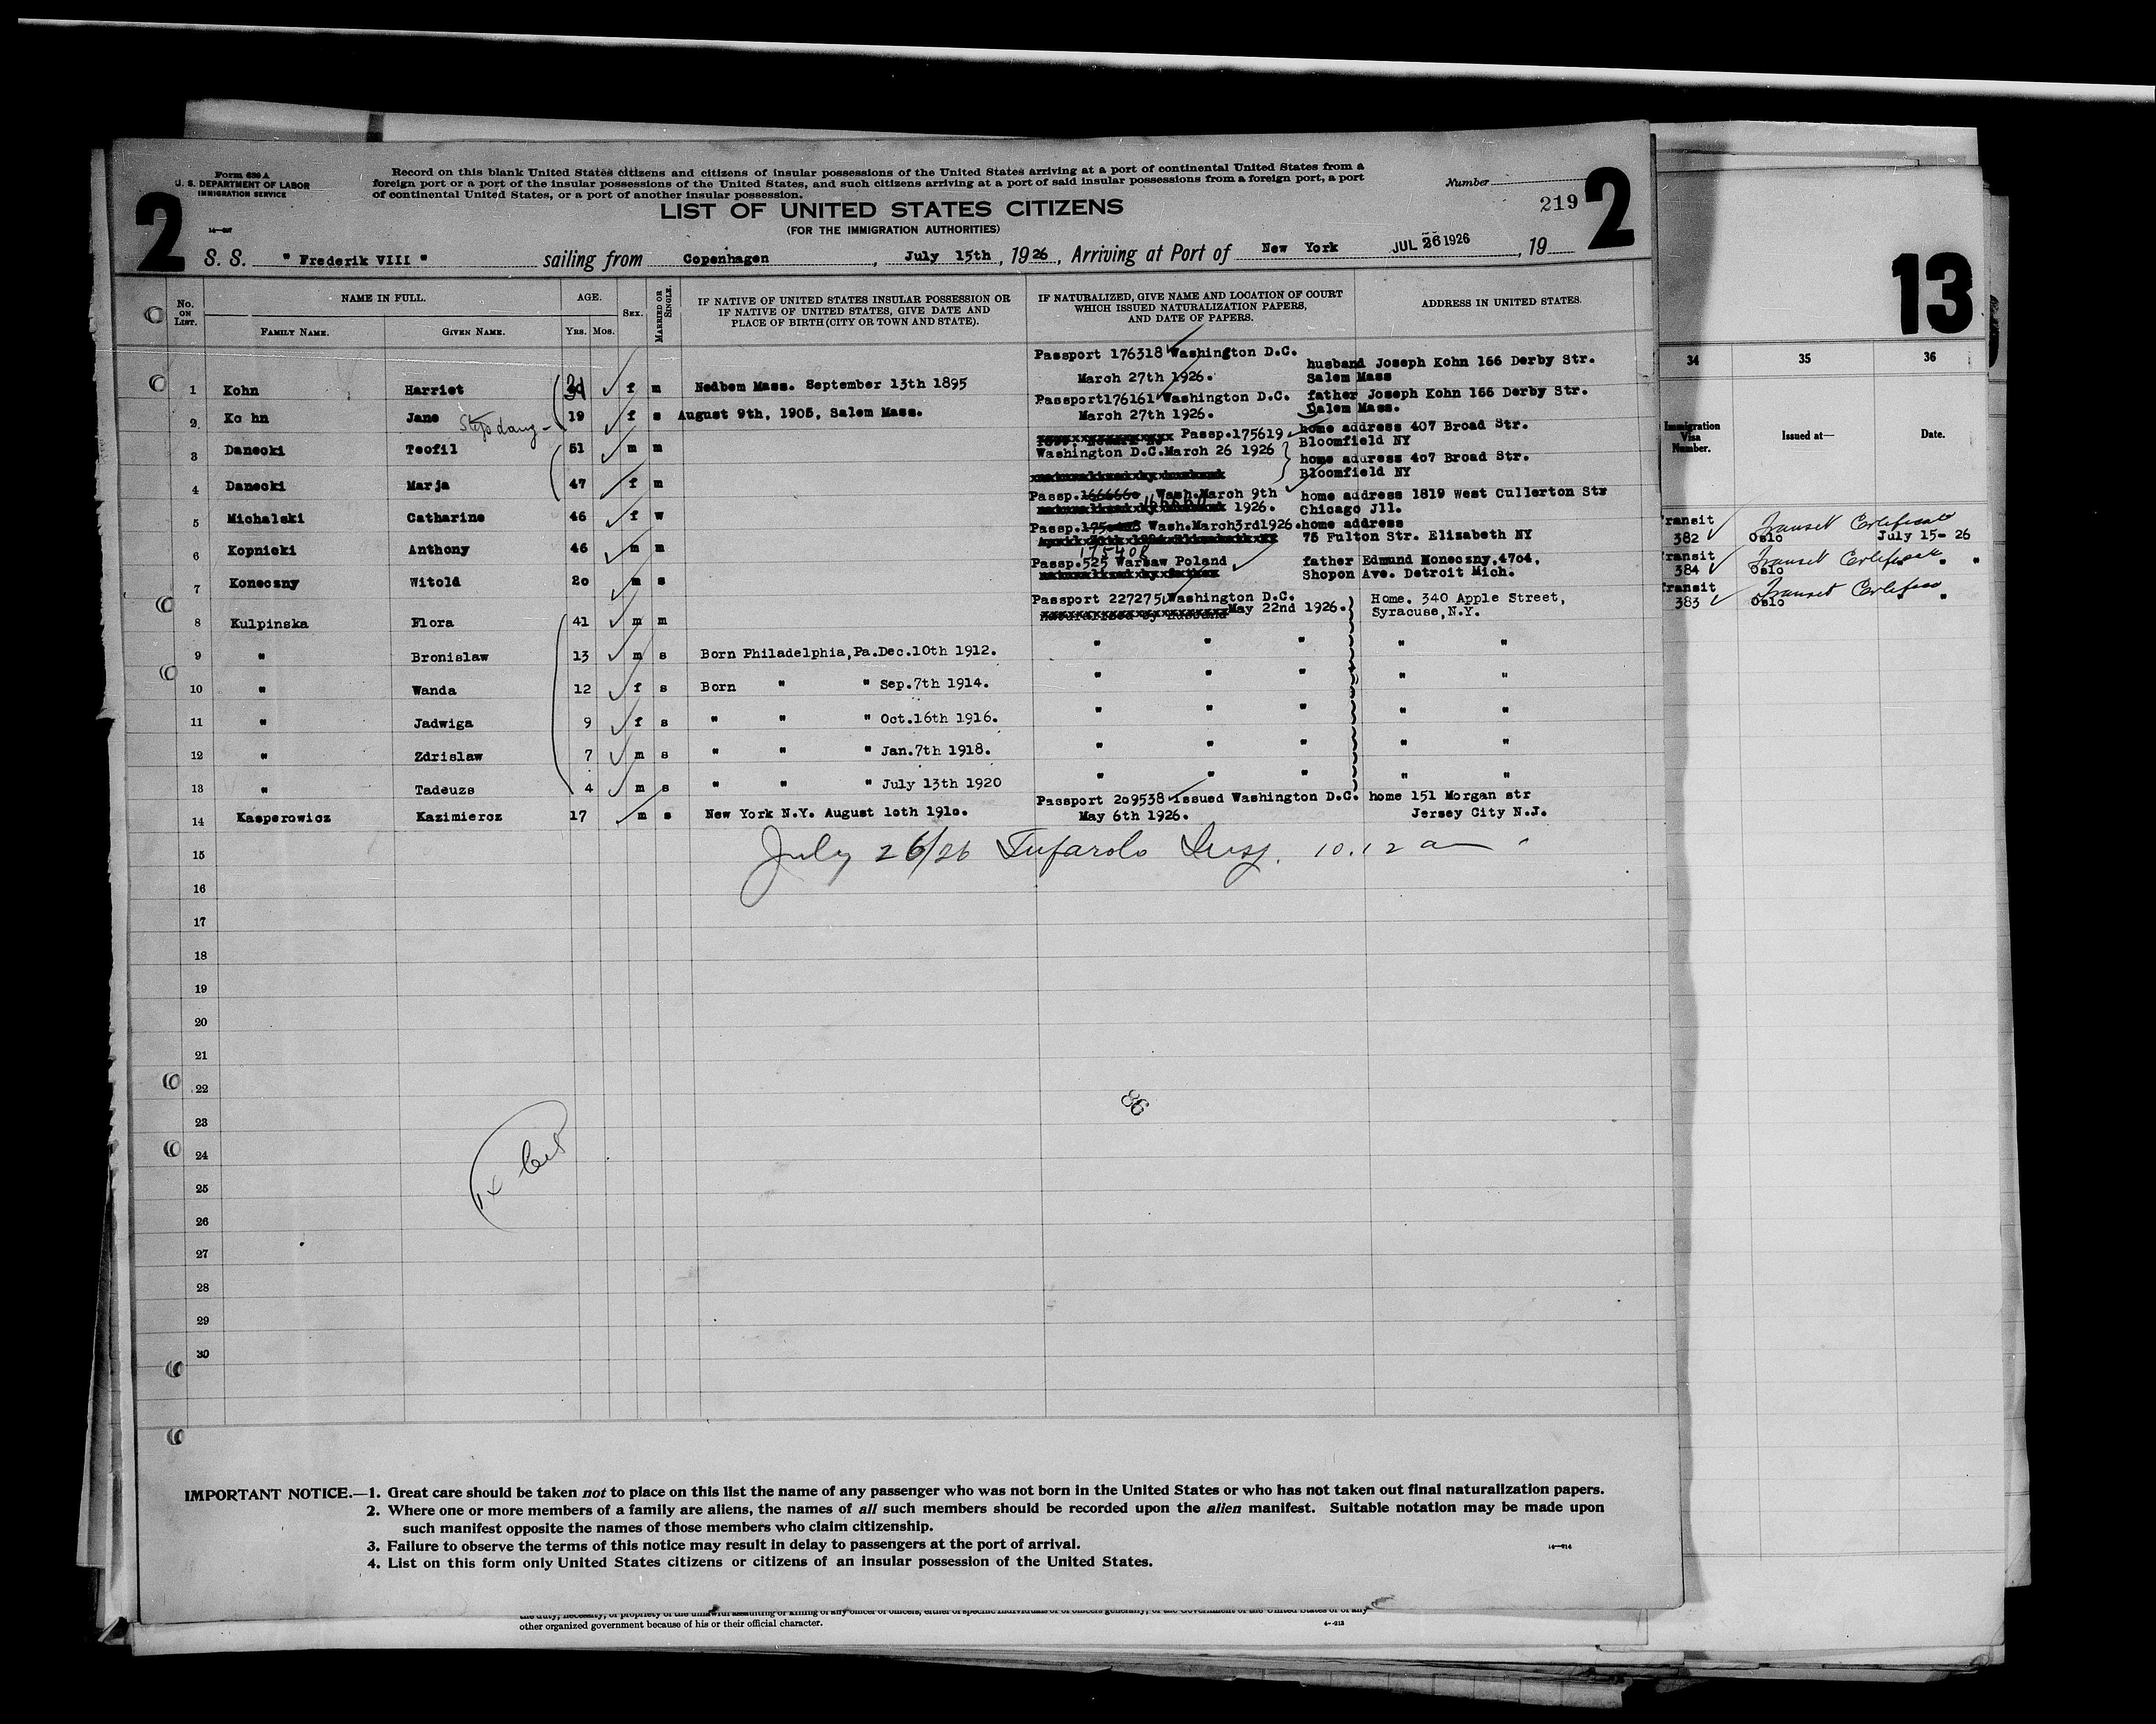 Form 630 A
U. S. DEPARTMENT OF LABOR
IMMIGRATION SERVICE
Record on this blank United States citizens and citizens of insular possessions of the United States arriving at a port of continental United States from a
foreign port or a port of the insular possessions of the United States, and such citizens arriving at a port of said insular possessions from a foreign port, a port
of continental United States, or a port of another insular possession.
Number
219
2
2
LIST OF UNITED STATES CITIZENS
(FOR THE IMMIGRATION AUTHORITIES)
S. S. " Frederik VIII " sailing from Copenhagen, July 15th, 1926, Arriving at Port of New York JUL 26 1926, 19
No. ON LIST.
NAME IN FULL.
FAMILY NAME. GIVEN NAME.
AGE.
YRS. MOS.
SEX.
MARRIED OR SINGLE.
IF NATIVE OF UNITED STATES INSULAR POSSESSION OR
IF NATIVE OF UNITED STATES, GIVE DATE AND
PLACE OF BIRTH (CITY OR TOWN AND STATE).
IF NATURALIZED, GIVE NAME AND LOCATION OF COURT
WHICH ISSUED NATURALIZATION PAPERS,
AND DATE OF PAPERS.
ADDRESS IN UNITED STATES.
Passport 176318 Washington D.C. husband Joseph Kohn 166 Derby Str.
1 Kohn Harriet f m Nedbem Mass. September 13th 1895 March 27th 1926. Salem Mass
Passport176161 Washington D.C. father Joseph Kohn 166 Derby Str.
2 Ko hn Jane Stepdaug- 19 f s August 9th, 1905, Salem Mass. March 27th 1926. Salem Mass.
Passp.175619 home address 407 Broad Str.
3 Danecki Teofil 51 m m Washington D.C.March 26 1926 Bloomfield NY
home address 407 Broad Str.
4 Danecki Marja 47 f m Bloomfield NY
Passp.166666o Wash.March 9th home address 1819 West Cullerton Str
5 Michalski Catharine 46 f w 1926. Chicago Jll.
Passp. Wash.March3rd1926.home address
6 Kopnicki Anthony 46 m m 75 Fulton Str. Elizabeth NY
175408
Passp.525 Warsaw Poland father Edmund Honeczny,47o4,
7 Koneczny Witold 2o m s Shopon Ave. Detroit Mich.
Passport 227275 Washington D.C. Home. 340 Apple Street,
8 Kulpinska Flora 41 m m May 22nd 1926. Syracuse,N.Y.
9 " Bronislaw 13 m s Born Philadelphia,Pa.Dec.10th 1912. " " " " "
10 " Wanda 12 f s Born " " Sep.7th 1914. " " " " "
11 " Jadwiga 9 f s " " " Oct.16th 1916. " " " " "
12 " Zdrislaw 7 m s " " " Jan.7th 1918. " " " " "
13 " Tadeuzs 4 m s " " " July 13th 1920 " " " " "
Passport 2o9538 issued Washington D.C. home 151 Morgan str
14 Kasperowicz Kazimiercz 17 m s New York N.Y. August 1oth 191o. May 6th 1926. Jersey City N.J.
15 July 26/26 Tufarolo Insp. 10.12 am
16
17
18
19
20
21
22
23
24
25
26
27
28
29
30
36
IMPORTANT NOTICE.—1. Great care should be taken not to place on this list the name of any passenger who was not born in the United States or who has not taken out final naturalization papers.
2. Where one or more members of a family are aliens, the names of all such members should be recorded upon the alien manifest. Suitable notation may be made upon
such manifest opposite the names of those members who claim citizenship.
3. Failure to observe the terms of this notice may result in delay to passengers at the port of arrival.
4. List on this form only United States citizens or citizens of an insular possession of the United States.
14—214
other organized government because of his or their official character.
4—213
13
34 35 36
Immigration Visa Number. Issued at— Date.
ransit Transit Certificate
382 Oslo July 15- 26
ransit Transit Certificate
384 Oslo " "
ransit Transit Certificate
383 Oslo " "